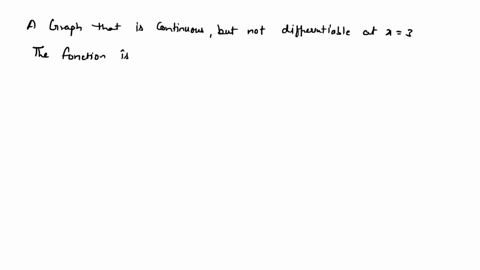 A Graph that is continuous, but not differentiable at x = 3
The function is